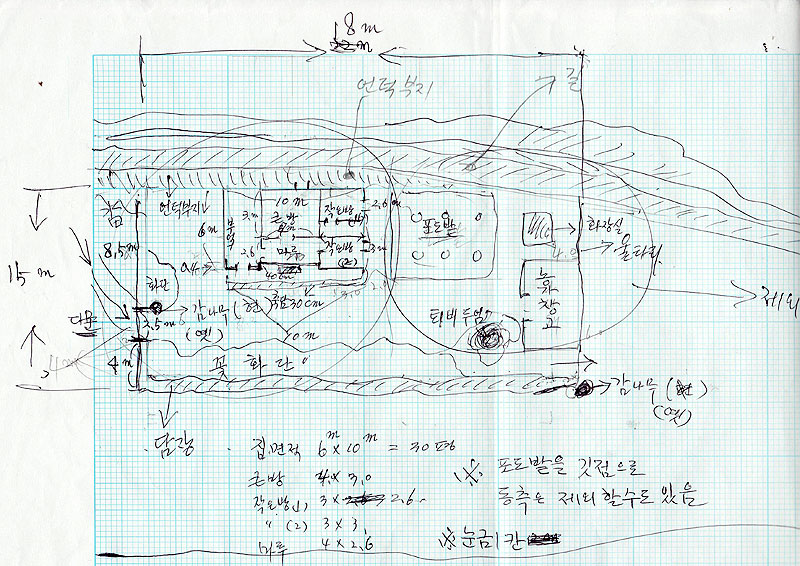 18 m
언덕부지
길
언덕부지
6 m
부엌
10 m
큰방
작은방
2.6 m
포도밭
화장실
울타리
8.5 m
15 m
화단
마루
작은방
(2)
창고
제외
대문
3.5 m
감나무 (현)
(옛)
폭 30cm
10 m
퇴비 두엄
4 m
꽃 화 단
감나무 (현)
(옛)
담장
집.면적 6m × 10m = 30평
큰방 4 × 3.0
작은방(1) 3 × 2.6
" (2) 3 × 3
마루 4 × 2.6
※ 포도밭을 깃점으로
동측은 제외 할수도 있음
※ 눈금 1칸